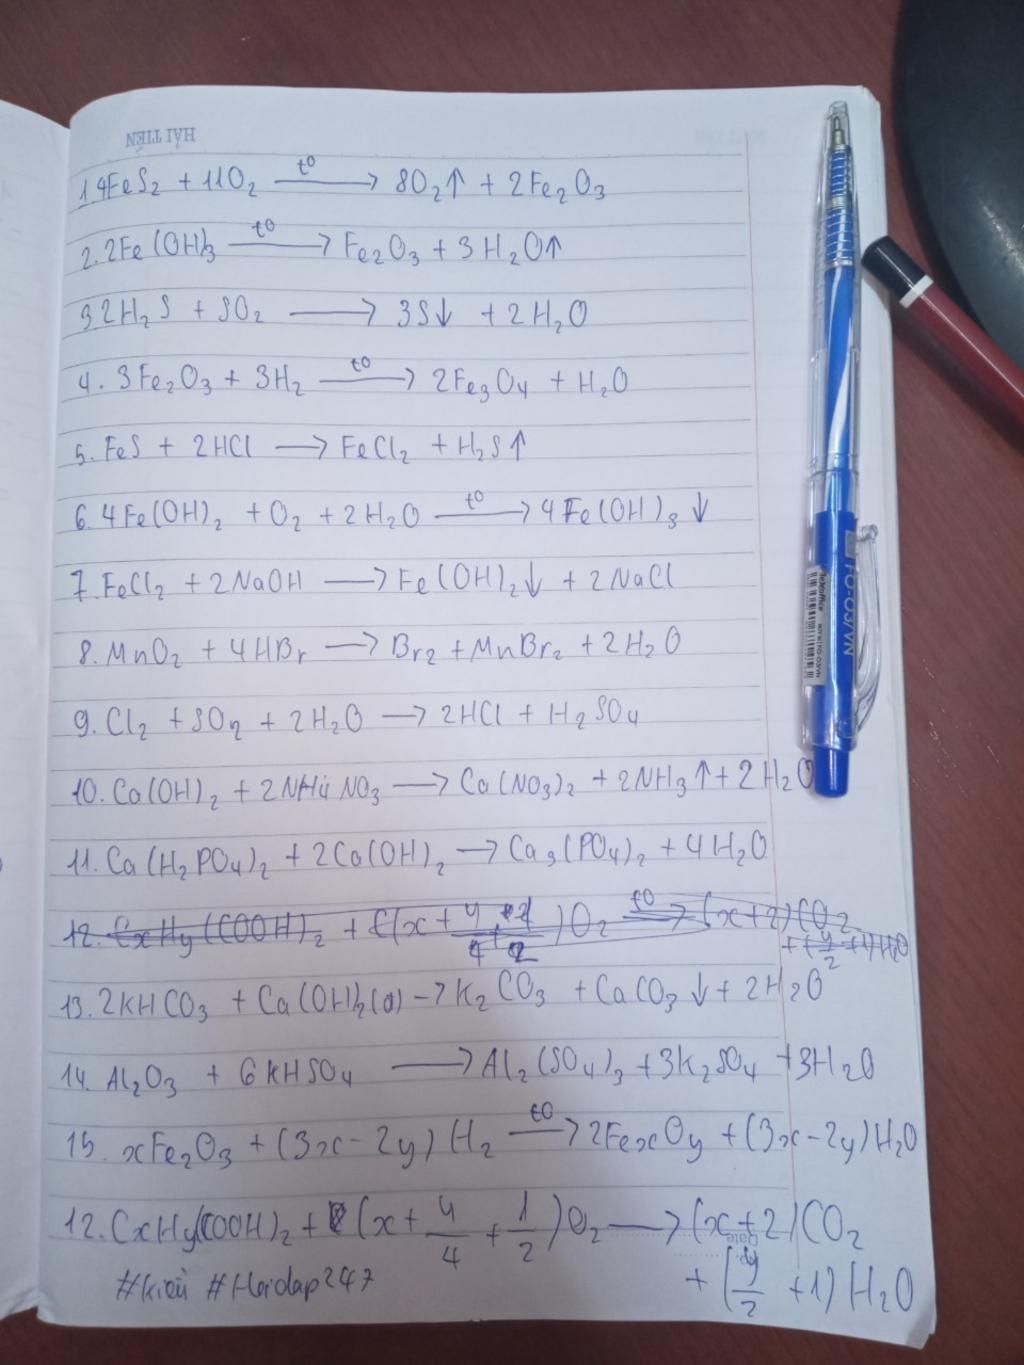 HẢI TIẾN
1 4FeS₂ + 11O₂ —t⁰→ 8O₂↑ + 2Fe₂O₃
2. 2Fe(OH)₃ —t⁰→ Fe₂O₃ + 3H₂O↑
3 2H₂S + SO₂ ⟶ 3S↓ + 2H₂O
4. 3Fe₂O₃ + 3H₂ —t⁰→ 2Fe₃O₄ + H₂O
5. FeS + 2HCl ⟶ FeCl₂ + H₂S↑
6. 4Fe(OH)₂ + O₂ + 2H₂O —t⁰→ 4Fe(OH)₃↓
7. FeCl₂ + 2NaOH ⟶ Fe(OH)₂↓ + 2NaCl
8. MnO₂ + 4HBr ⟶ Br₂ + MnBr₂ + 2H₂O
9. Cl₂ + SO₂ + 2H₂O ⟶ 2HCl + H₂SO₄
10. Ca(OH)₂ + 2NH₄NO₃ ⟶ Ca(NO₃)₂ + 2NH₃↑ + 2H₂O
11. Ca(H₂PO₄)₂ + 2Ca(OH)₂ ⟶ Ca₃(PO₄)₂ + 4H₂O
12. CxHy(COOH)₂ + (x + O₂ —t⁰→ (x+2)CO₂
+ (y/2 + 1)H₂O
13. 2KHCO₃ + Ca(OH)₂(d) → K₂CO₃ + CaCO₃↓ + 2H₂O
14. Al₂O₃ + 6KHSO₄ ⟶ Al₂(SO₄)₃ + 3K₂SO₄ + 3H₂O
15. xFe₂O₃ + (3x-2y)H₂ —t⁰→ 2FexOy + (3x-2y)H₂O
12. CxHy(COOH)₂ + (x + y/4 + 1/2)O₂ ⟶ (x+2)CO₂
+ (y/2 + 1)H₂O
Date
#kiới #Hoidap247
FO-03/VN